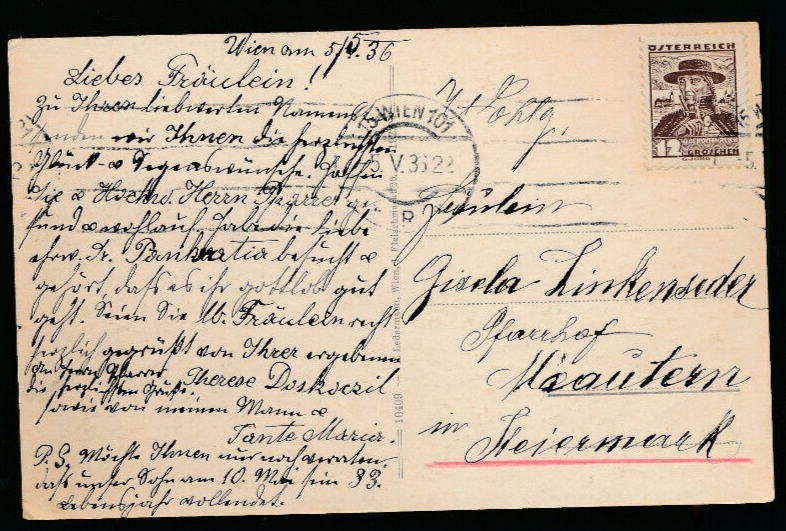 Wien am 5/5. 36
Liebes Fräulein!
Zu Ihren liebwerten Namens
senden wir Ihnen die herzlichsten
Glück- & Segenswünsche. Hoffen
Sie & Hochw. Herrn Pfarrer ge-
sund & wohlauf. Habe die liebe
ehrw. Sr. Pankratia besucht &
gehört, dass es ihr gottlob gut
geht. Seien Sie lb. Fräulein recht
herzlich gegrüßt von Ihrer ergebenen
an Herrn Pfarrer
die herzlichsten Grüße.
Therese Doskoczil
sowie von meinem Mann &
Tante Maria.
P.S. Möchte Ihnen nur noch verraten,
dass unser Sohn am 10. Mai sein 33.
Lebensjahr vollendet.
10409 Ledermann, Wien, Fleischmarkt
WIEN 101
5. V. 36 22
R
ÖSTERREICH
12
GROSCHEN
Fräulein
Gisela Linkenseder
Pfarrhof
Mautern
in
Steiermark